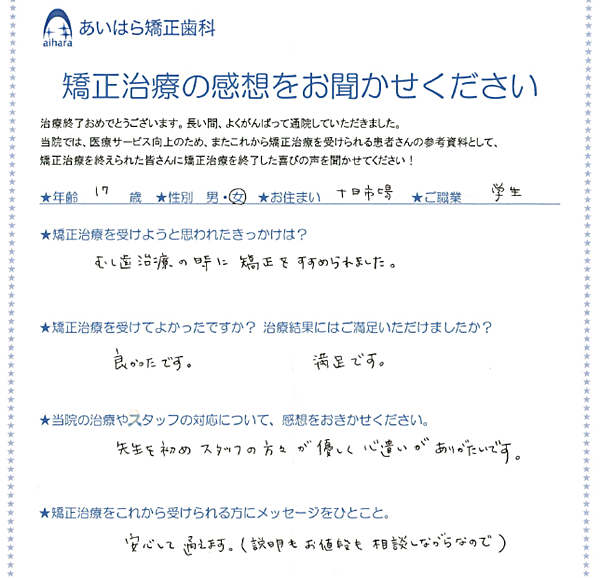 あいはら矯正歯科
aihara
矯正治療の感想をお聞かせください
治療終了おめでとうございます。長い間、よくがんばって通院していただきました。
当院では、医療サービス向上のため、またこれから矯正治療を受けられる患者さんの参考資料として、
矯正治療を終えられた皆さんに矯正治療を終了した喜びの声を聞かせてください！
★年齢 17 歳 ★性別 男・女 ★お住まい 十日市場 ★ご職業 学生
★矯正治療を受けようと思われたきっかけは？
むし歯治療の時に矯正をすすめられました。
★矯正治療を受けてよかったですか？ 治療結果にはご満足いただけましたか？
良かったです。 満足です。
★当院の治療やスタッフの対応について、感想をおきかせください。
先生を初めスタッフの方々が優しく心遣いがありがたいです。
★矯正治療をこれから受けられる方にメッセージをひとこと。
安心して通えます。(説明もお値段も相談しながらなので)